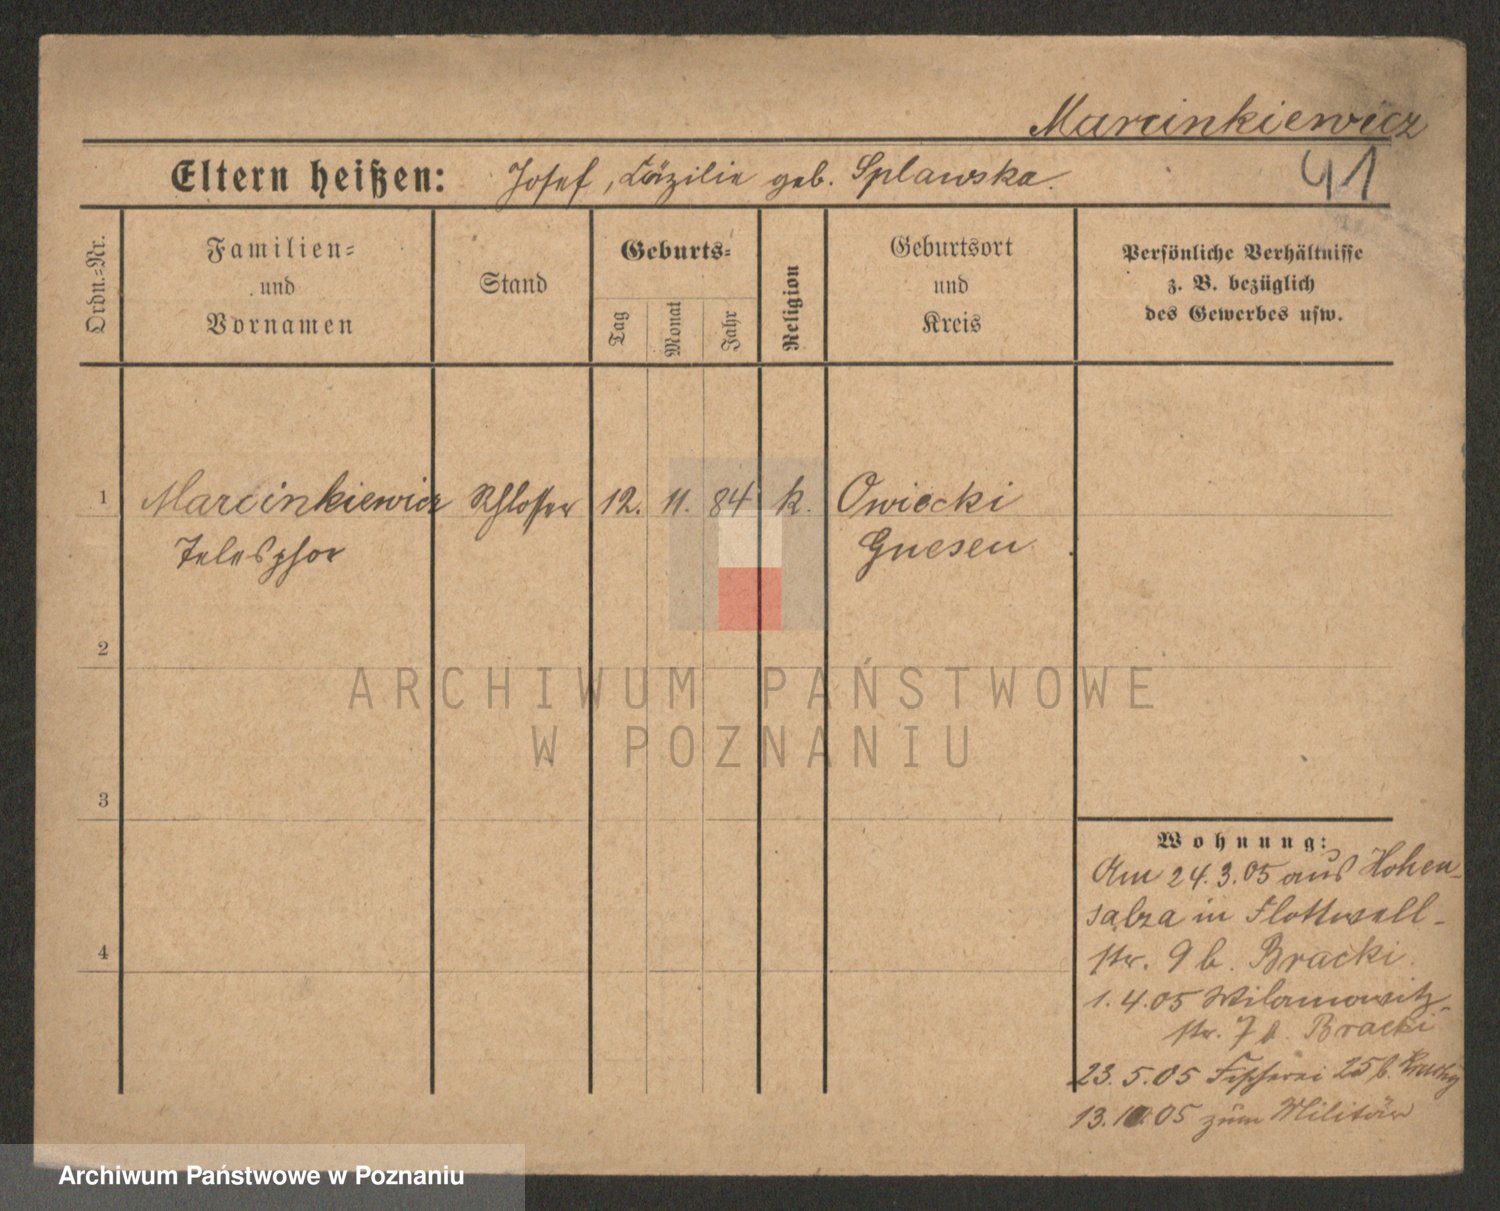 Marcinkiewicz
Eltern heißen: Josef, Cäzilie geb. Splawska.
41
Ordn.=Nr.
Familien=
und
Vornamen
Stand
Geburts=
Tag
Monat
Jahr
Religion
Geburtsort
und
Kreis
Persönliche Verhältnisse
z. B. bezüglich
des Gewerbes usw.
1 Marcinkiewicz Schlosser 12. 11. 84 k. Owiecki
Telesphor Gnesen
2
3
4
ARCHIWUM PAŃSTWOWE
W POZNANIU
Wohnung:
Am 24.3.05 aus Hohen-
salza in Flottwell-
str. 9 b. Bracki.
1.4.05 Wilamowitz-
str. 7 Bracki
23.5.05 Fischerei 25 b.
13.10.05 zum Militär
Archiwum Państwowe w Poznaniu